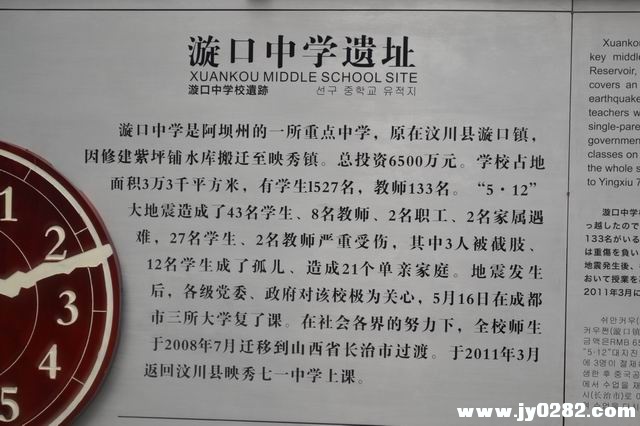 漩口中学遗址
XUANKOU MIDDLE SCHOOL SITE
漩口中学校遺跡 선구 중학교 유적지
漩口中学是阿坝州的一所重点中学，原在汶川县漩口镇，
因修建紫坪铺水库搬迁至映秀镇。总投资6500万元。学校占地
面积3万3千平方米，有学生1527名，教师133名。“5·12”
大地震造成了43名学生、8名教师、2名职工、2名家属遇
难，27名学生、2名教师严重受伤，其中3人被截肢、
12名学生成了孤儿、造成21个单亲家庭。地震发生
后，各级党委、政府对该校极为关心，5月16日在成都
市三所大学复了课。在社会各界的努力下，全校师生
于2008年7月迁移到山西省长治市过渡。于2011年3月
返回汶川县映秀七一中学上课。
1
2
3
4
5
Xuankou
key middle
Reservoir,
covers an
earthquake
teachers w
single-pare
government
classes on
the whole s
to Yingxiu 7
漩口中学
っ越したので
133名がいる
は重傷を負い
地震発生後、
おいて授業を
2011年3月に
쉬안커우(
커우쩐(漩口镇
금액은RMB 65
"5·12"대지진
에 3명이 절제
생한 후 중국공
에서 수업을 재
시(长治市)로 이
www.jy0282.com